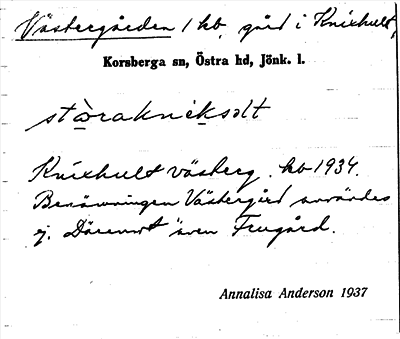 Västergården 1 kb gård i Knixhult,
Korsberga sn, Östra hd, Jönk. l.
stòrakneksəlt
Knixhult västerg. kb 1934.
Benämningen Västergård användes
ej. Däremot även Frugård.
Annalisa Anderson 1937